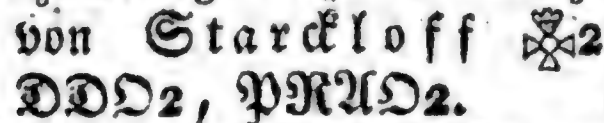 von Starckloff 2
DDO2, PRAO2.